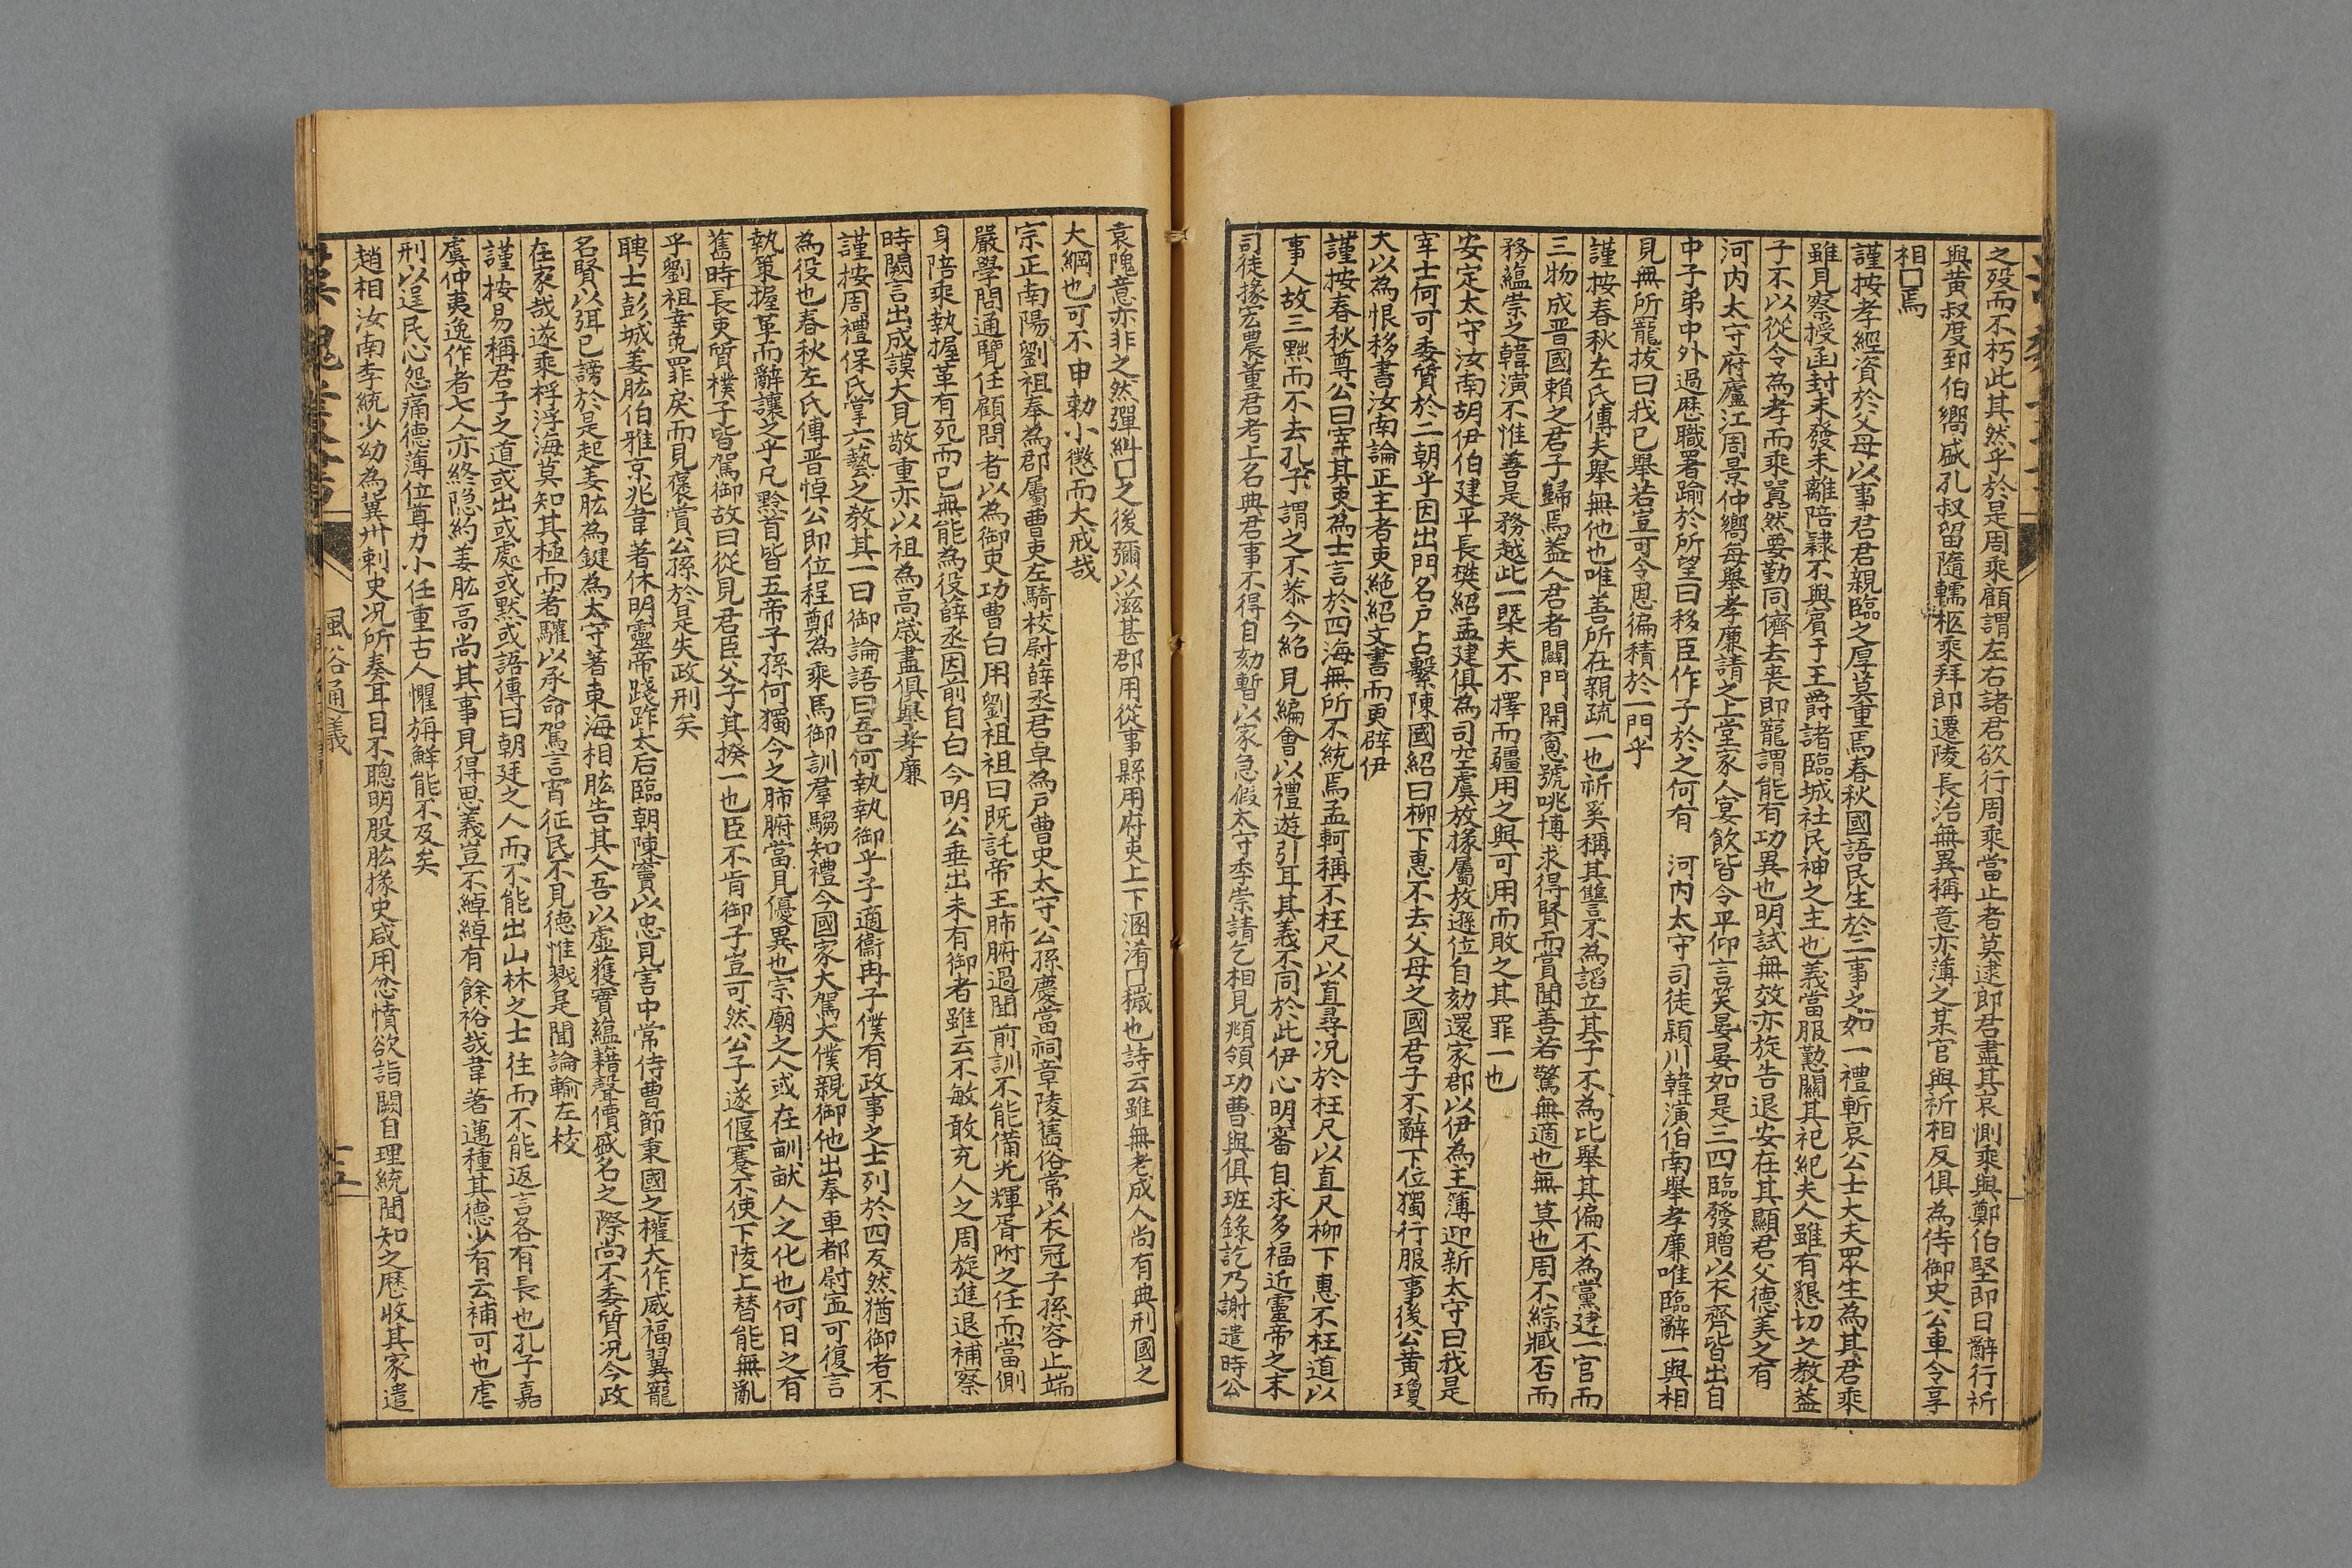 之歿而不朽此其然乎於是周乘顧謂左右諸君欲行周乘當止者莫逮郎君盡其哀惻乘與鄭伯堅即日辭行祈
與黃叔度郅伯嚮盛孔叔留隨轜柩乘拜郎遷陵長治無異稱意亦薄之某官與祈相反俱為侍御史公車令享
相囗焉
謹按孝經資於父母以事君君親臨之厚莫重焉春秋國語民生於三事之如一禮斬哀公士大夫眾生為其君乘
雖見察授函封未發未離陪隸不與賓于王爵諸臨城社民神之主也義當服勤關其祀紀夫人雖有懇切之教蓋
子不以從令為孝而乘囂然要勤同儕去喪即寵謂能有功異也明試無效亦旋告退安在其顯君父德美之有
河内太守府廬江周景仲嚮每舉孝廉請之上堂家人宴飲皆令平仰言笑晏晏如是三四臨發贈以衣齊皆出自
中子弟中外過歷職署踰於所望曰移臣作子於之何有　河内太守司徒潁川韓演伯南舉孝廉唯臨辭一與相
見無所寵拔曰我已舉若豈可令恩偏積於一門乎
謹按春秋左氏傳夫舉無他也唯善所在親疏一也祈奚稱其讐不為諂立其子不為比舉其偏不為黨建一官而
三物成晋國賴之君子歸焉蓋人君者闢門開窻號咷博求得賢而賞聞善若驚無適也無莫也周不綜臧否而
務蘊崇之韓演不惟善是務越此一槩夫不擇而疆用之與可用而敗之其罪一也
安定太守汝南胡伊伯建平長樊紹孟建俱為司空虞放掾屬放遜位自劾還家郡以伊為主簿迎新太守曰我是
宰士何可委質於二朝乎因出門名户占繫陳國紹曰柳下惠不去父母之國君子不辭下位獨行服事後公黃瓊
大以為恨移書汝南論正主者吏絶紹文書而更辟伊
謹按春秋尊公曰宰其吏為士言於四海無所不統焉孟軻稱不枉尺以直尋况於枉尺以直尺柳下惠不枉道以
事人故三黜而不去孔子謂之不恭今紹見編會以禮遊引耳其義不同於此伊心明審自求多福近靈帝之末
司徒掾宏農董君考上名典君事不得自劾暫以家急假太守李崇請乞相見頻領功曹與俱班錄訖乃謝遣時公
袁隗意亦非之然彈糾囗之後彌以滋甚郡用從事縣用府吏上下溷淆囗穢也詩云雖無老成人尚有典刑國之
大綱也可不申勑小懲而大戒哉
宗正南陽劉祖奉為郡屬曹吏左騎校尉薛丞君卓為户曹史太守公孫慶當祠章陵舊俗常以衣冠子孫容止端
嚴學問通覽任顧問者以為御吏功曹白用劉祖祖曰既託帝王肺腑過聞前訓不能備光輝胥附之任而當側
身陪乘執握革有死而已無能為役薛丞因前自白今明公垂出未有御者雖云不敏敢充人之周旋進退補察
時闕言出成謨大見敬重亦以祖為高歲盡俱舉孝廉
謹按周禮保氏掌六藝之教其一曰御論語曰吾何執執御乎子適衞冉子僕有政事之士列於四友然猶御者不
為役也春秋左氏傳晋悼公即位程鄭為乘馬御訓羣騶知禮今國家大駕大僕親御他出奉車都尉寍可復言
執策握革而辭讓之乎凡黔首皆五帝子孫何獨今之肺腑當見優異也宗廟之人或在甽畎人之化也何日之有
舊時長吏質樸子皆駕御故曰從見君臣父子其揆一也臣不肯御子豈可然公子遂偃蹇不使下陵上替能無亂
乎劉祖幸免罪戾而見襃賞公孫於是失政刑矣
聘士彭城姜肱伯雅京兆韋著休明靈帝踐阼太后臨朝陳竇以忠見害中常侍曹節秉國之權大作威福冀寵
名賢以弭已謗於是起姜肱為犍為太守著東海相肱告其人吾以虛獲實蘊藉聲價盛名之際尚不委質況今政
在家哉遂乘桴浮海莫知其極而著驩以承命駕言宵征民不見德惟戮是聞論輸左校
謹按易稱君子之道或出或處或默或語傳曰朝廷之人而不能出山林之士往而不能返言各有長也孔子嘉
虞仲夷逸作者七人亦終隱約姜肱高尚其事見得思義豈不綽綽有餘裕哉韋著邁種其德少有云補可也虐
刑以逞民心怨痛德薄位尊力小任重古人懼旃鮮能不及矣
趙相汝南李統少幼為冀州刺史况所奏耳目不聰明股肱掾史咸用忿憤欲詣闕自理統聞知之歷收其家遣
風俗通義
十五